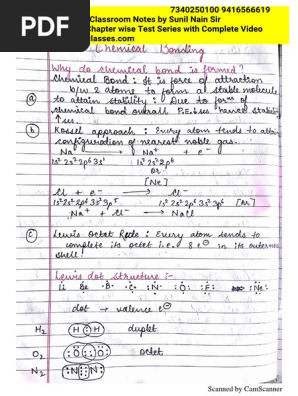 PDF
7340250100 9416566619
Classroom Notes by Sunil Nain Sir
Chapter wise Test Series with Complete Video
classes.com
Chemical Bonding
Why do chemical bond is formed?
Chemical Bond : It is force of attraction
b/w 2 atoms to form a stable molecule
(a) to attain stability : Due to form of
chemical bond overall P.E. ↓ses hence stability
↑ses.
(b) Kossel approach : Every atom tends to attain
configuration of nearest noble gas.
Na → Na⁺ + e⁻
1s² 2s² 2p⁶ 3s¹ 1s² 2s² 2p⁶
or
[Ne]
Cl + e⁻ → Cl⁻
1s² 2s² 2p⁶ 3s² 3p⁵ 1s² 2s² 2p⁶ 3s² 3p⁶ [Ar]
Na⁺ + Cl⁻ → NaCl
(c) Lewis Octet Rule : Every atom tends to
complete its octet i.e. 8 e⁻ in its outermost
shell
Lewis dot structure :-
Li Be B C N O F Ne
dot → valence e⁻
H₂ H H duplet
O₂ O O octet
N₂ N N
Scanned by CamScanner